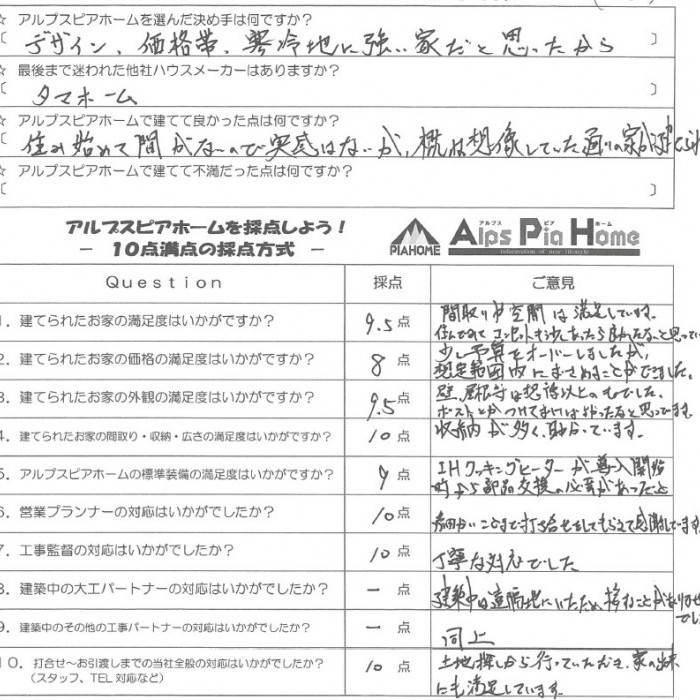 ☆ アルプスピアホームを選んだ決め手は何ですか？
〔 デザイン、価格帯、寒冷地に強い家だと思ったから 〕
☆ 最後まで迷われた他社ハウスメーカーはありますか？
〔 タマホーム 〕
☆ アルプスピアホームで建てて良かった点は何ですか？
〔 住み始めて間がないので実感はないが、概ね想像していた通りの家が
☆ アルプスピアホームで建てて不満だった点は何ですか？
〔 〕
アルプスピアホームを採点しよう！
－ 10点満点の採点方式 －
PIAHOME
アルプス ピア ホーム
Alps Pia Home
Question 採点 ご意見
1．建てられたお家の満足度はいかがですか？ 9.5 点 間取りや空間は満足しています。
住んでみてコンセントもう少しあったら良かったなと思って
2．建てられたお家の価格の満足度はいかがですか？ 8 点 少し予算をオーバーしましたが、
想定範囲内におさめることができました。
3．建てられたお家の外観の満足度はいかがですか？ 9.5 点 壁、屋根等は想像以上のものでした。
ポストとかつけてもいいと思います。
4．建てられたお家の間取り・収納・広さの満足度はいかがですか？ 10 点 収納が多く、助かっています。
5．アルプスピアホームの標準装備の満足度はいかがですか？ 9 点 IHクッキングヒーターが導入開始
時から部品交換の必要があったこと
6．営業プランナーの対応はいかがでしたか？ 10 点 細かいことまで打ち合せをしてもらえて感謝しています。
7．工事監督の対応はいかがでしたか？ 10 点 丁寧な対応でした
8．建築中の大工パートナーの対応はいかがでしたか？ － 点 建築中は遠隔地にいたため、接することがありませ
9．建築中のその他の工事パートナーの対応はいかがでしたか？ － 点 同上
10．打合せ～お引渡しまでの当社全般の対応はいかがでしたか？ 10 点 土地探しから行っていただき、家の出来
（スタッフ、TEL対応など） にも満足しています。